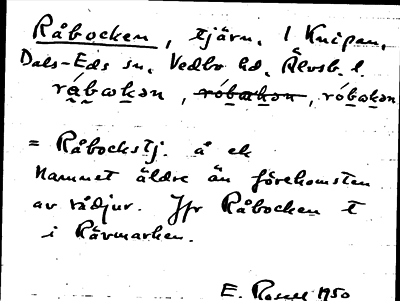 Råbocken, tjärn, i Knipan,
Dals-Eds sn, Vedbo hd, Älvsb. l.
råbωkən, róbωkən
= Råbockstj. å ek
Namnet äldre än förekomsten
av rådjur. Jfr Råbocken t
i Rävmarken.
E. 1950